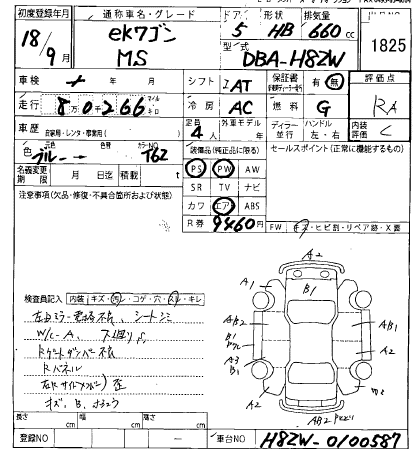 初度登録年月
通称車名・グレード
ドア 形状 排気量
18年 9月
ekワゴン
MS
5 HB 660cc
型式 DBA-H82W
1825
車検 年 月
シフト IAT
保証書 有 無
評価点 RA
走行 8万0266 マイル キロ
冷房 AC
燃料 G
車歴 自家用・レンタ・事業用( )
定員 4人
外車モデル
ディーラー 並行
ハンドル 左・右
内装評価 C
色 ブルー
色替
カラーNO T62
装備品(純正品に限る)
セールスポイント(正常に機能するもの)
PS PW AW
名義変更期限 月 日迄
積載 t
SR TV ナビ
注意事項(欠品・修復・不具合箇所および状態)
カワ エア ABS
R券 9460円
FW キズ・ヒビ割・リペア跡・X画
検査員記入 内装 キズ・汚レ・コゲ・穴・スレ・キレ
左ドミラー電格不良、シートシミ
W/C-A、下廻りS
Rゲートダンパー不良
Rパネル
右Rサイドメンバー)歪
キズ、B、
A2
A1
B1
AB2
AB1
B1
A3
B1
A2
A2
A2
AB2
長さ cm
幅 cm
高さ cm
登録NO
車台NO H82W-0100587